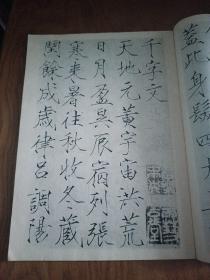 蓋此身髮四大
千字文
天地元黃宇宙洪荒
日月盈昃辰宿列張
寒來暑往秋收冬藏
閏餘成歲律呂調陽